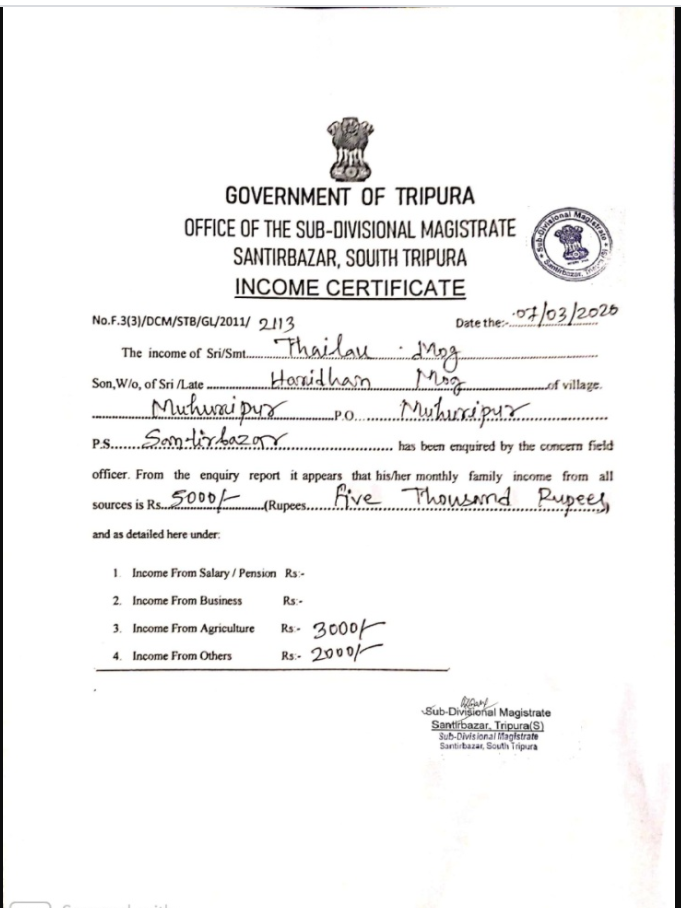 GOVERNMENT OF TRIPURA
OFFICE OF THE SUB-DIVISIONAL MAGISTRATE
SANTIRBAZAR, SOUITH TRIPURA
INCOME CERTIFICATE
Sub-Divisional Magistrate
Santirbazar, Tripura(S)
No.F.3(3)/DCM/STB/GL/2011/ 2113
Date the:-......07/03/2020
The income of Sri/Smt.......Thailau Mog
Son,W/o, of Sri /Late ........Haridhan Mog........of village.
Muhuripur P.O.... Muhuripur
P.S..... Santirbazar ........ has been enquired by the concern field
officer. From the enquiry report it appears that his/her monthly family income from all
sources is Rs...5000/-......(Rupees......Five Thousand Rupees,
and as detailed here under:
1. Income From Salary / Pension Rs:-
2. Income From Business Rs:-
3. Income From Agriculture Rs:- 3000/-
4. Income From Others Rs:- 2000/-
Sub-Divisional Magistrate
Santirbazar, Tripura(S)
Sub-Divisional Magistrate
Santirbazar, South Tripura